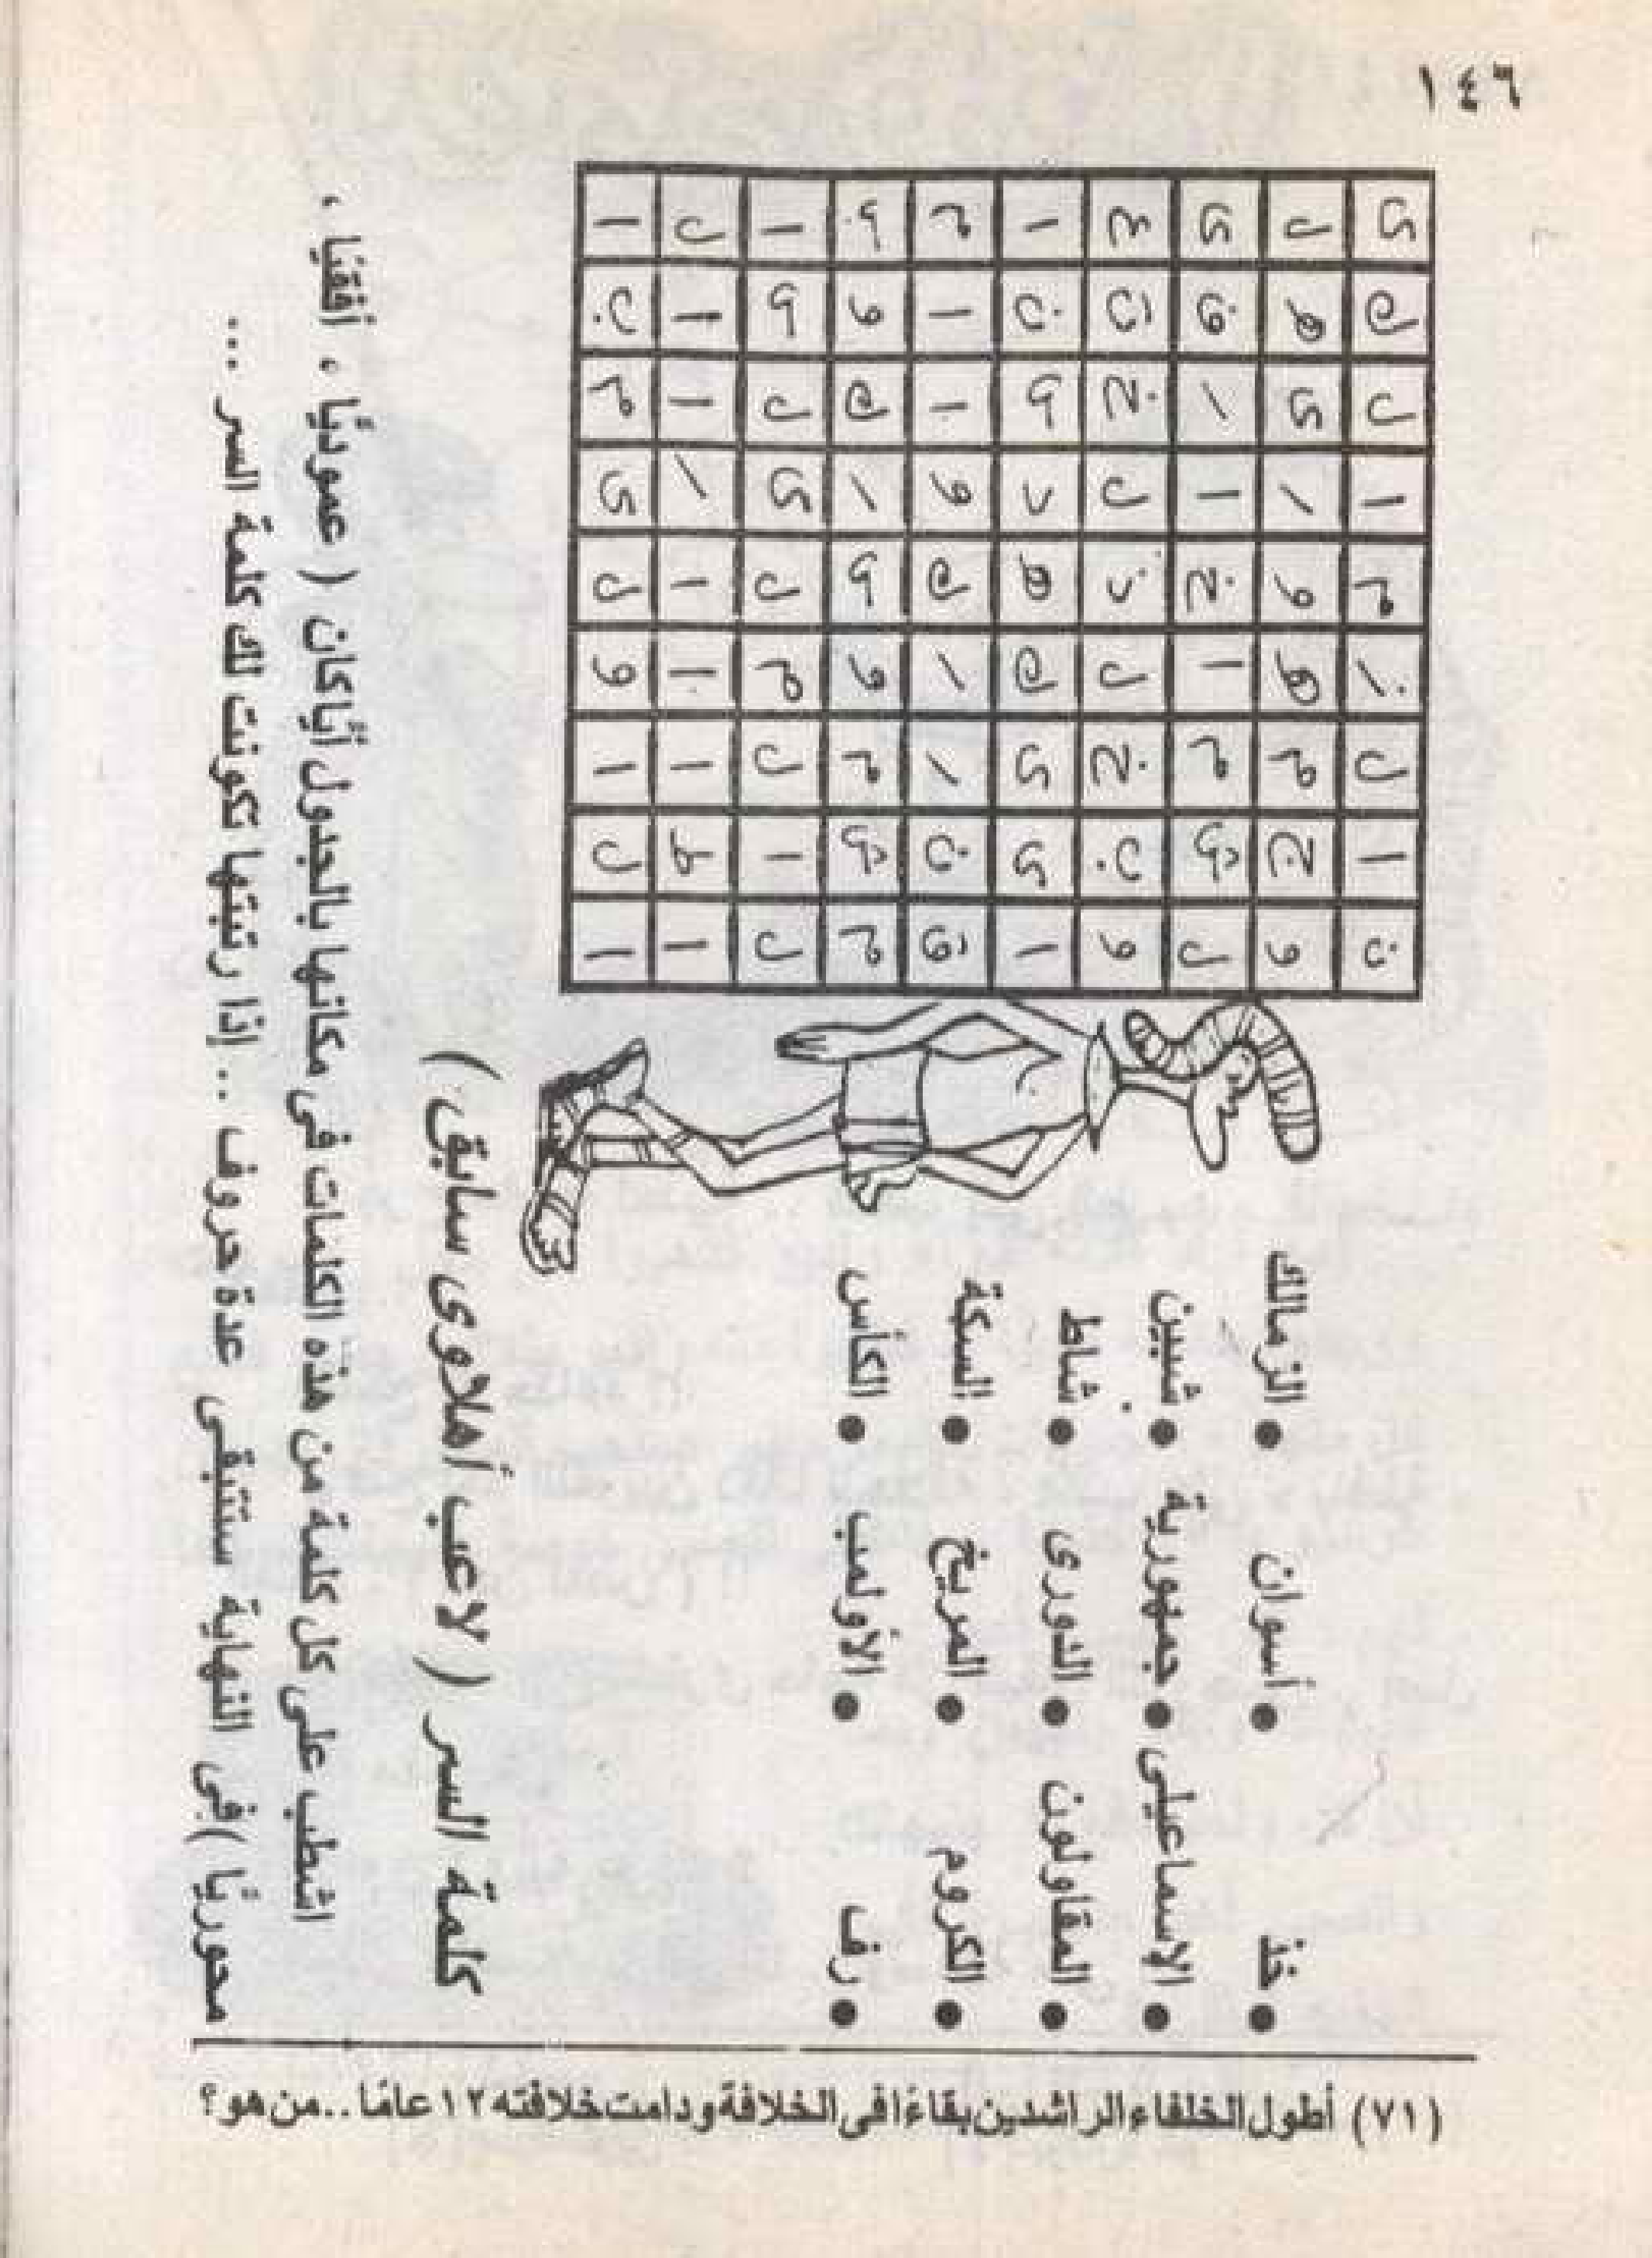 ١٤٦
• خذ • أسوان • الزمالك
• الاسماعيلى • جمهورية • شبين
• المقاولون • الدورى • شاط
• الكروم • المريخ • السكة
• رف • الأولمب • الكأس
ن ا ل ز م ا ل ك ى
و ج م ه و ر ى ه ل
ل ش م ا خ ا ر ف ى
و ن خ ل ذ ل خ ت ع
ا ى ى ك ه د س ن ا
ق ب ر ا ك و ا ا م
م ش م و س ر ك و س
ل ا ل م ل ى ل س ا
ا ط ا ا ا ر ا ا ل
ا ل ا و ل ى م ب ا
كلمة السر ( لاعب أهلاوى سابق )
اشطب على كل كلمة من هذه الكلمات فى مكانها بالجدول أياكان ( عموديًا ، أفقيًا ،
محوريًا )فى النهاية ستتبقى عدة حروف .. إذا رتبتها تكونت لك كلمة السر ...
(٧١) أطول الخلفاء الراشدين بقاءً افى الخلافة ودامت خلافته ١٢ عامًا .. من هو ؟